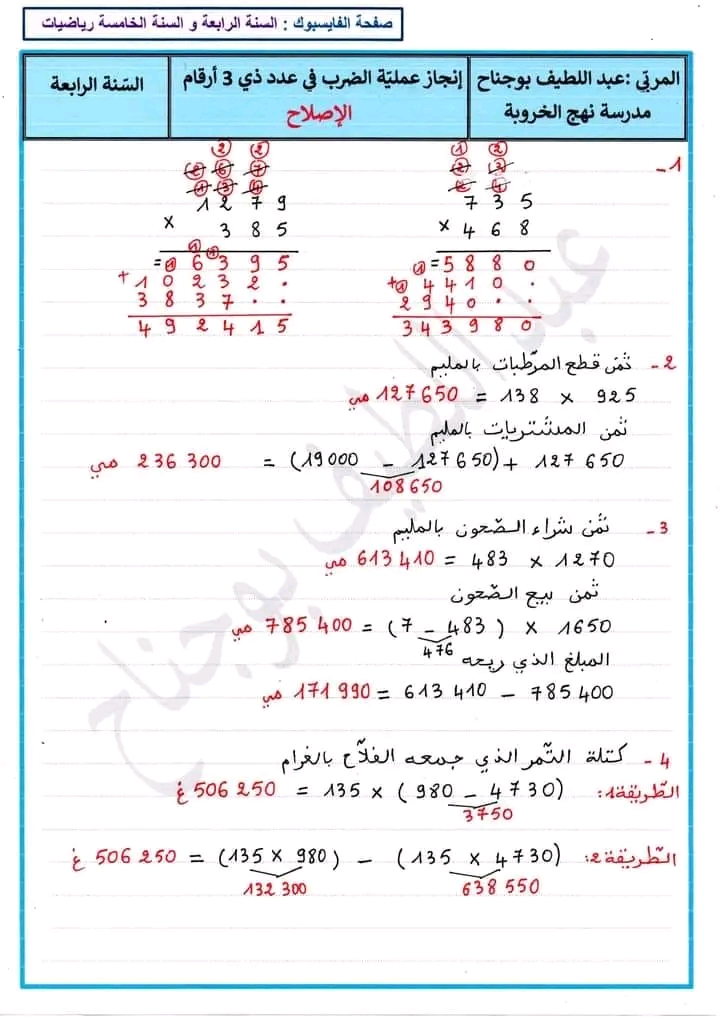 صفحة الفايسبوك : السنة الرابعة و السنة الخامسة رياضيات
المربّي :عبد اللطيف بوجناح
مدرسة نهج الخروبة
إنجاز عمليّة الضرب في عدد ذي 3 أرقام
الإصلاح
السّنة الرابعة
1 -
① ②
② ③
② ④
7 3 5
× 4 6 8
① = 5 8 8 0
+ ① 4 4 1 0 ·
2 9 4 0 · ·
3 4 3 9 8 0
② ②
② ⑥ ⑦
① ③ ④
1 2 7 9
× 3 8 5
① ①
= ① 6 3 9 5
+ 1 0 2 3 2 ·
3 8 3 7 · ·
4 9 2 4 1 5
2 - ثمن قطع المرطّبات بالمليم
925 × 138 = 127 650 مي
ثمن المشتريات بالمليم
127 650 + (127 650 - 19 000) = 236 300 مي
108 650
3 - ثمن شراء الصّحون بالمليم
1270 × 483 = 613 410 مي
ثمن بيع الصّحون
1650 × (483 - 7) = 785 400 مي
476
المبلغ الذي ربحه
785 400 - 613 410 = 171 990 مي
4 - كتلة التّمر الذي جمعه الفلّاح بالغرام
الطّريقة 1: (4730 - 980) × 135 = 506 250 غ
3750
الطّريقة 2: (4730 × 135) - (980 × 135) = 506 250 غ
638 550
132 300
عبد اللطيف بوجناح